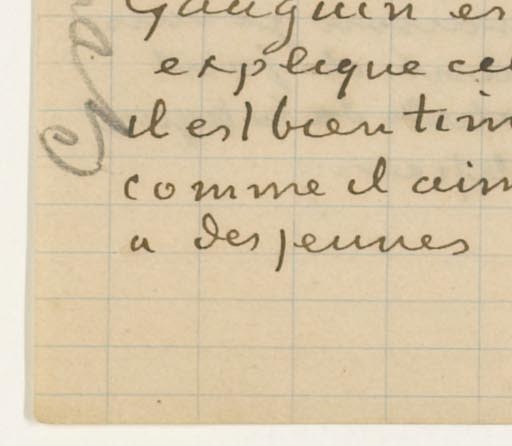 Gauguin es
explique ce
il est bien tim
comme il aim
a des jeunes